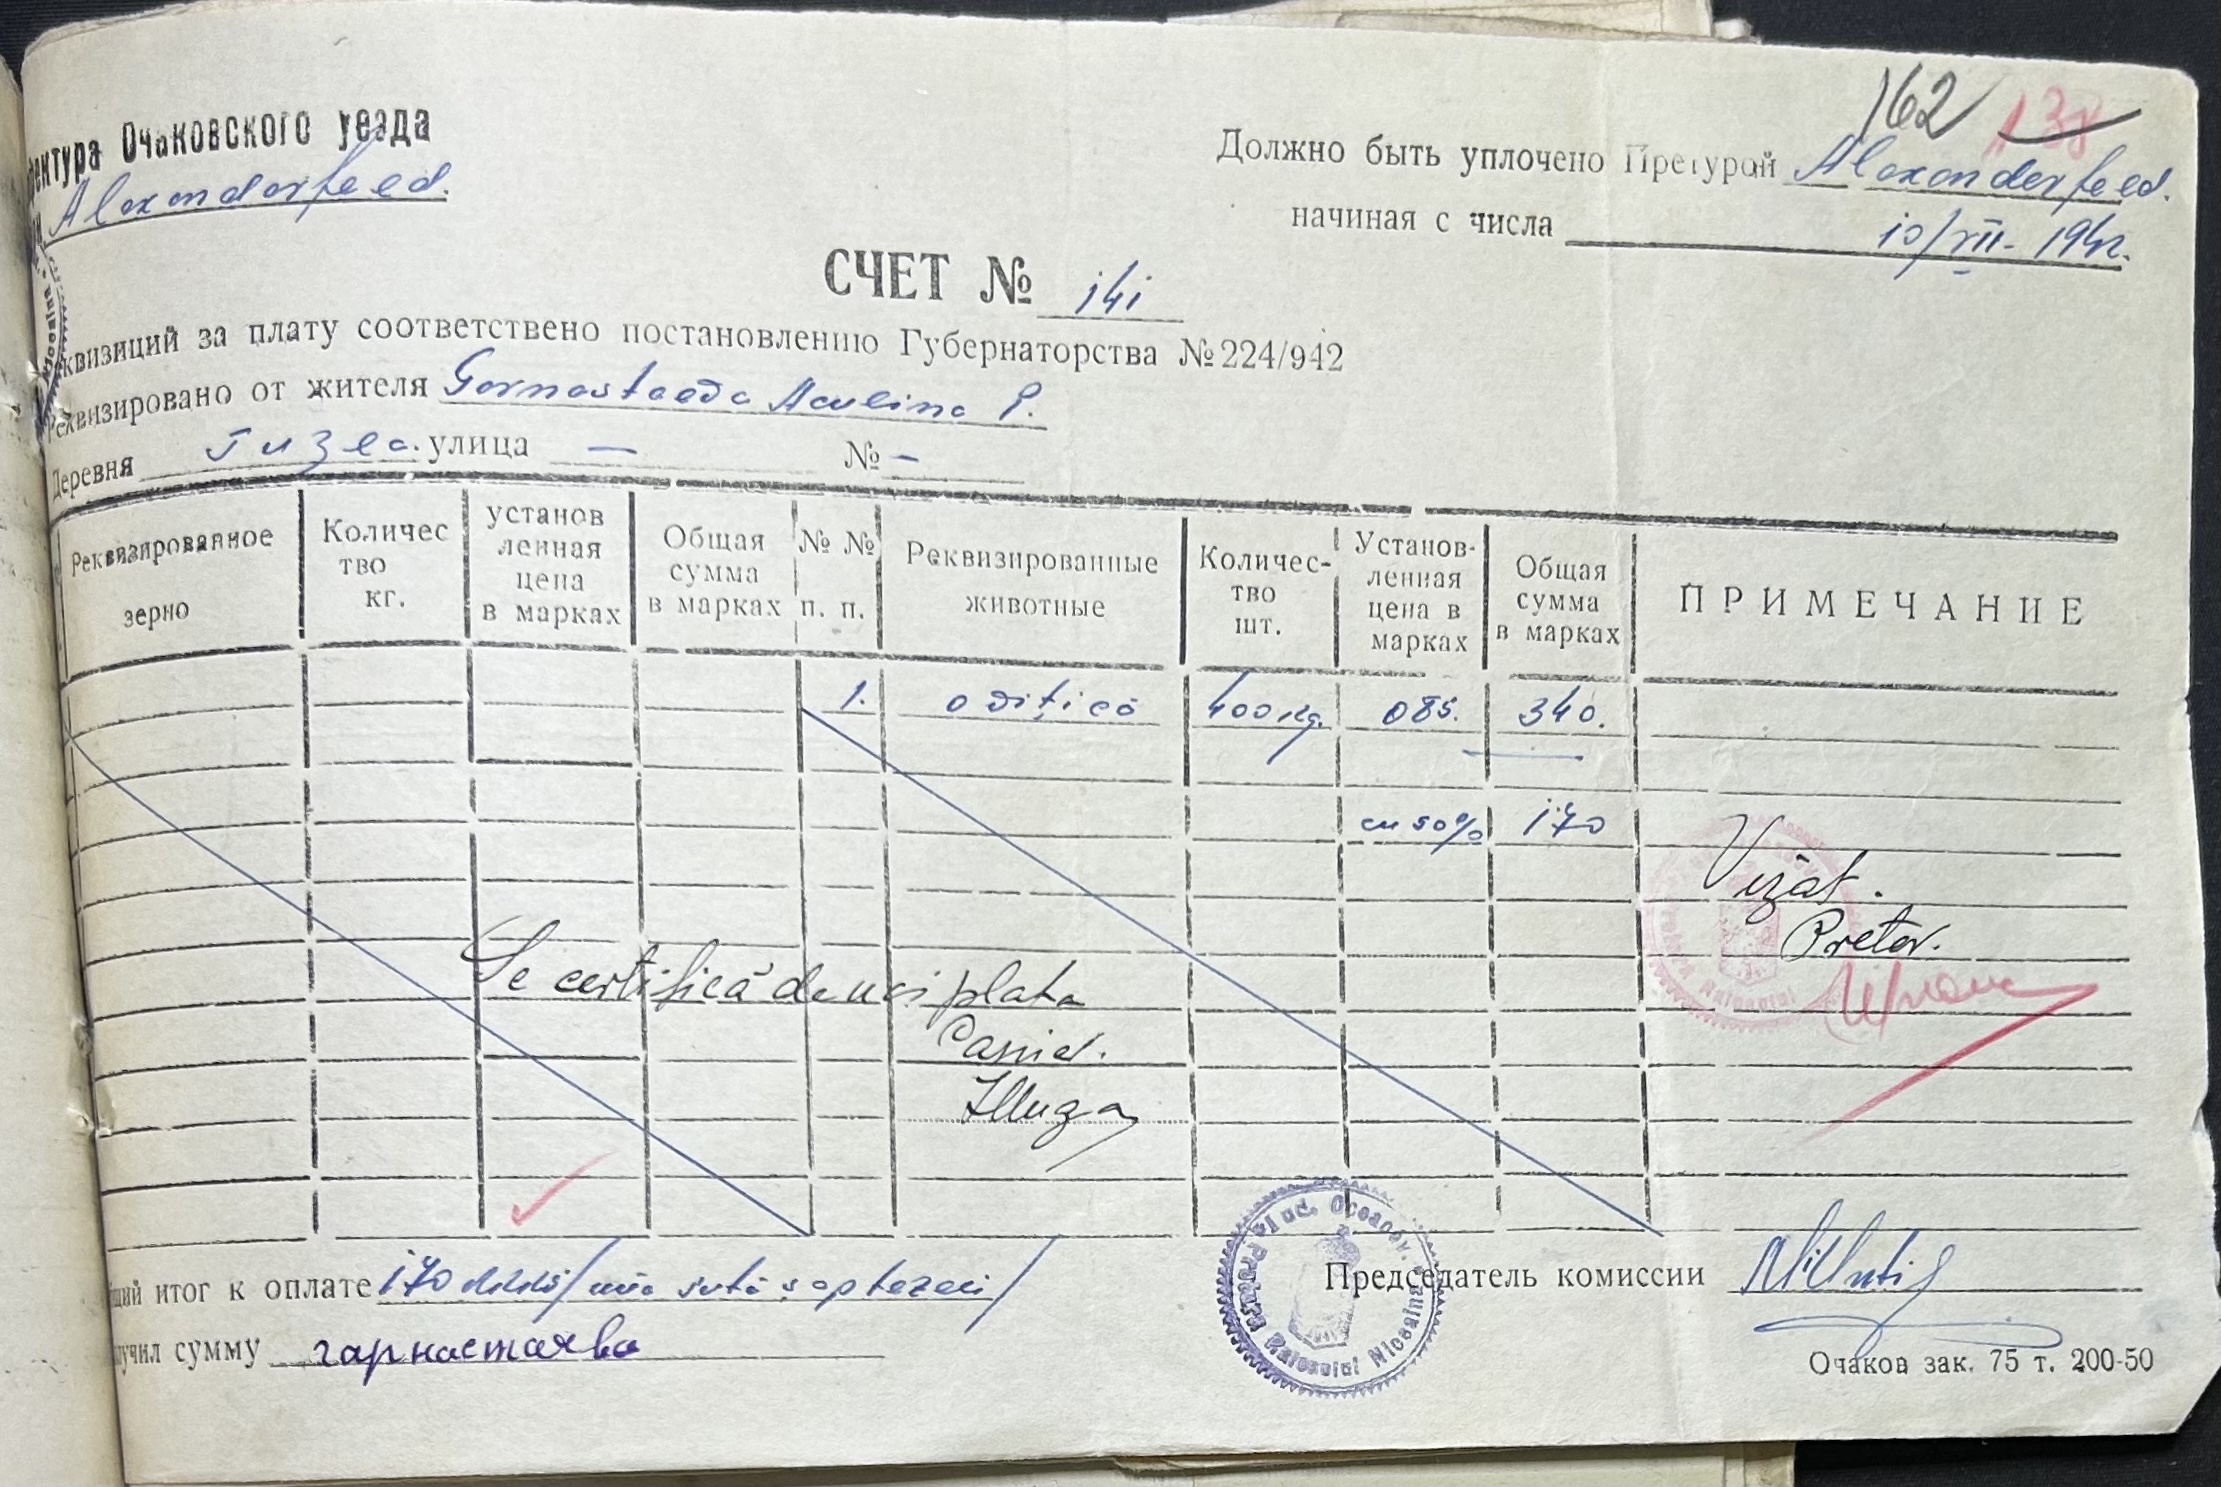 162 138
ектура Очаковского уезда
Alexanderfeed.
Должно быть уплочено Претурой Alexanderfeed.
начиная с числа 10/VII- 1942.
СЧЕТ № 141
квизиций за плату соответствено постановлению Губернаторства №224/942
Реквизировано от жителя Gornostaeva Aculina P.
Деревня улица — № –
Реквизированное зерно
Количес тво кг.
установ ленная цена в марках
Общая сумма в марках
№ № п. п.
Реквизированные животные
Количес- тво шт.
Установ- ленная цена в марках
Общая сумма в марках
ПРИМЕЧАНИЕ
1. o vițică 400 kg. 085. 340.
cu 50% 170
Vizat.
Pretor.
Se certifică de noi plata
Casier.
щий итог к оплате 170 /una sută șaptezeci/
Председатель комиссии
лучил сумму гарнастаева
Jud. Oceacov. Pretura Raionului
Очаков зак. 75 т. 200-50